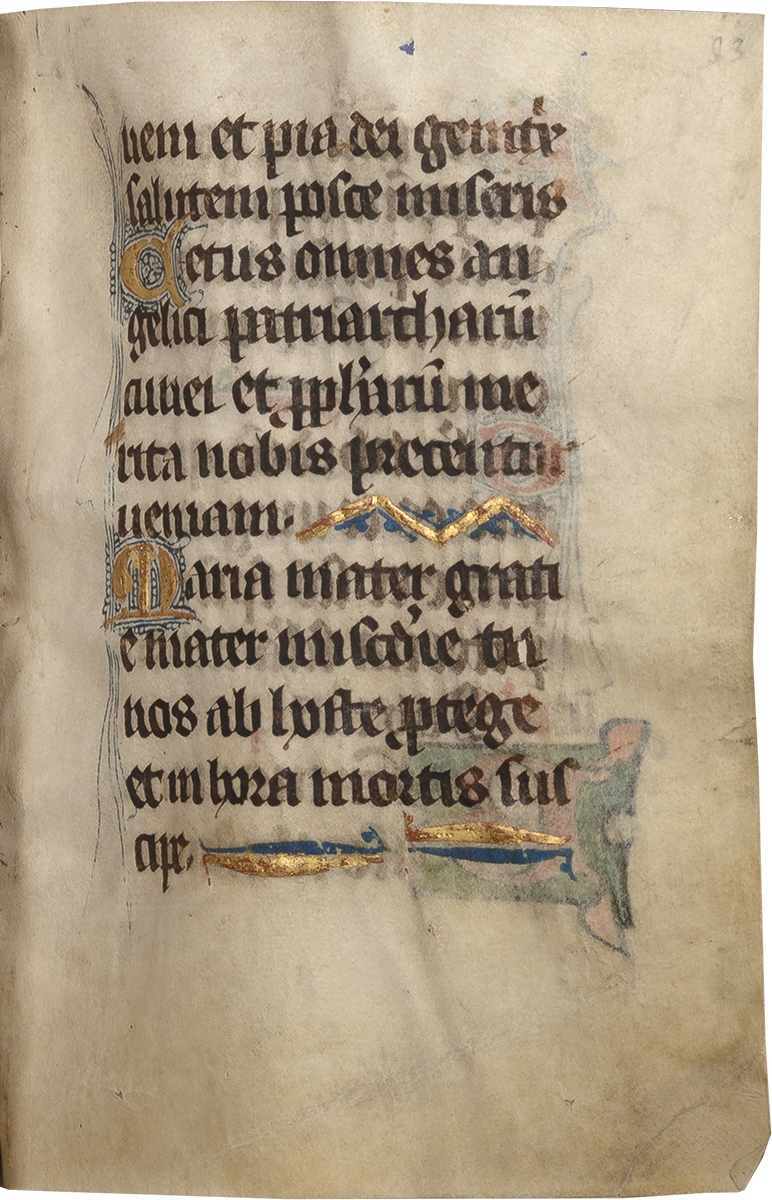 ueni et pia dei genitx
salutem posce miseris
Cetus omnes an
gelici patriarcharū
cunei et ꝓph'arū me
rita nobis precentur
ueniam.
Maria mater grati
e mater mis̄cd'ie tu
nos ab hoste ꝓtege
et in hora mortis sus
cipe.